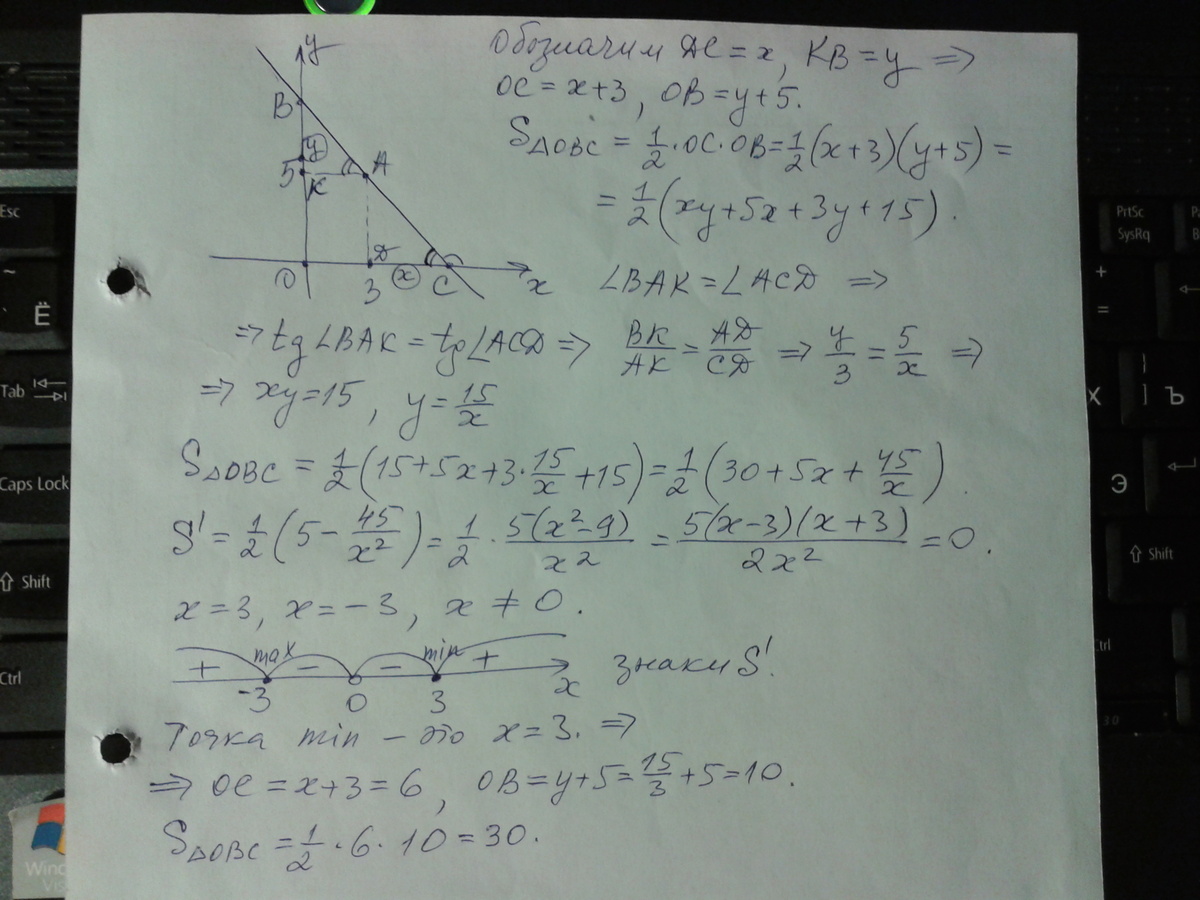 Обозначим DC = x, KB = y ⇒
OC = x+3, OB = y+5.
S△OBC = 1/2 · OC · OB = 1/2 (x+3)(y+5) =
= 1/2 (xy+5x+3y+15).
y
B
y
5
K
A
D
O
3
x
C
x
∠BAK = ∠ACD ⇒
⇒ tg∠BAK = tg∠ACD ⇒ BK/AK = AD/CD ⇒ y/3 = 5/x ⇒
⇒ xy=15, y = 15/x
S△OBC = 1/2 (15+5x+3·15/x+15) = 1/2 (30+5x+45/x).
S' = 1/2 (5 − 45/x²) = 1/2 · 5(x²−9)/x² = 5(x−3)(x+3)/2x² = 0.
x = 3, x = −3, x ≠ 0.
+ max − − min +
-3 0 3 x
знаки S'.
Точка min – это x = 3. ⇒
⇒ OC = x+3 = 6, OB = y+5 = 15/3 + 5 = 10.
S△OBC = 1/2 · 6 · 10 = 30.
Esc
~
` Ё
Tab
Caps Lock
⇧ Shift
Ctrl
Wind
Vis
PrtSc
SysRq
Pa
B
+
=
Х
}
]
Ъ
Э
⇧ Shift
trl